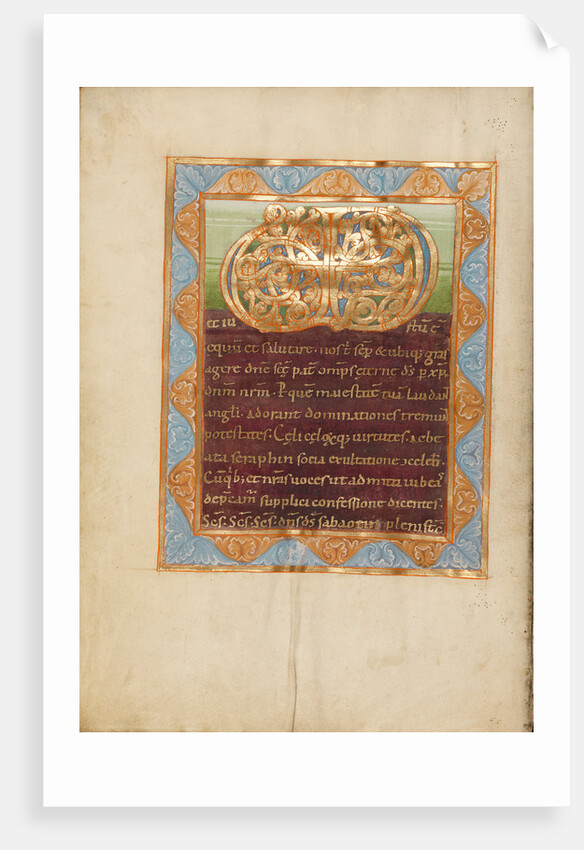 et iu stū ē
equū et salutare. nos t͛ sēp & ubiqꝫ gra
agere dn̄e sc̄e pat͛ om̄ps eterne d̄s p xp̄m
dn̄m nr̄m. P quē maiestatē tuā laudan
angli. Adorant dominationes tremun
potestates. Cęli cęlorꝫqꝫ virtutes. ac be
ata seraphin socia exultatione ↄcelebr̄.
Cū qͥbꝫ et nr̄as uoces ut admitti iubeas
dep̄camͬ supplici confessione dicentes.
Sc̄s. Sc̄s. Sc̄s. dn̄s d̄s sabaoth pleni st̄ c̄